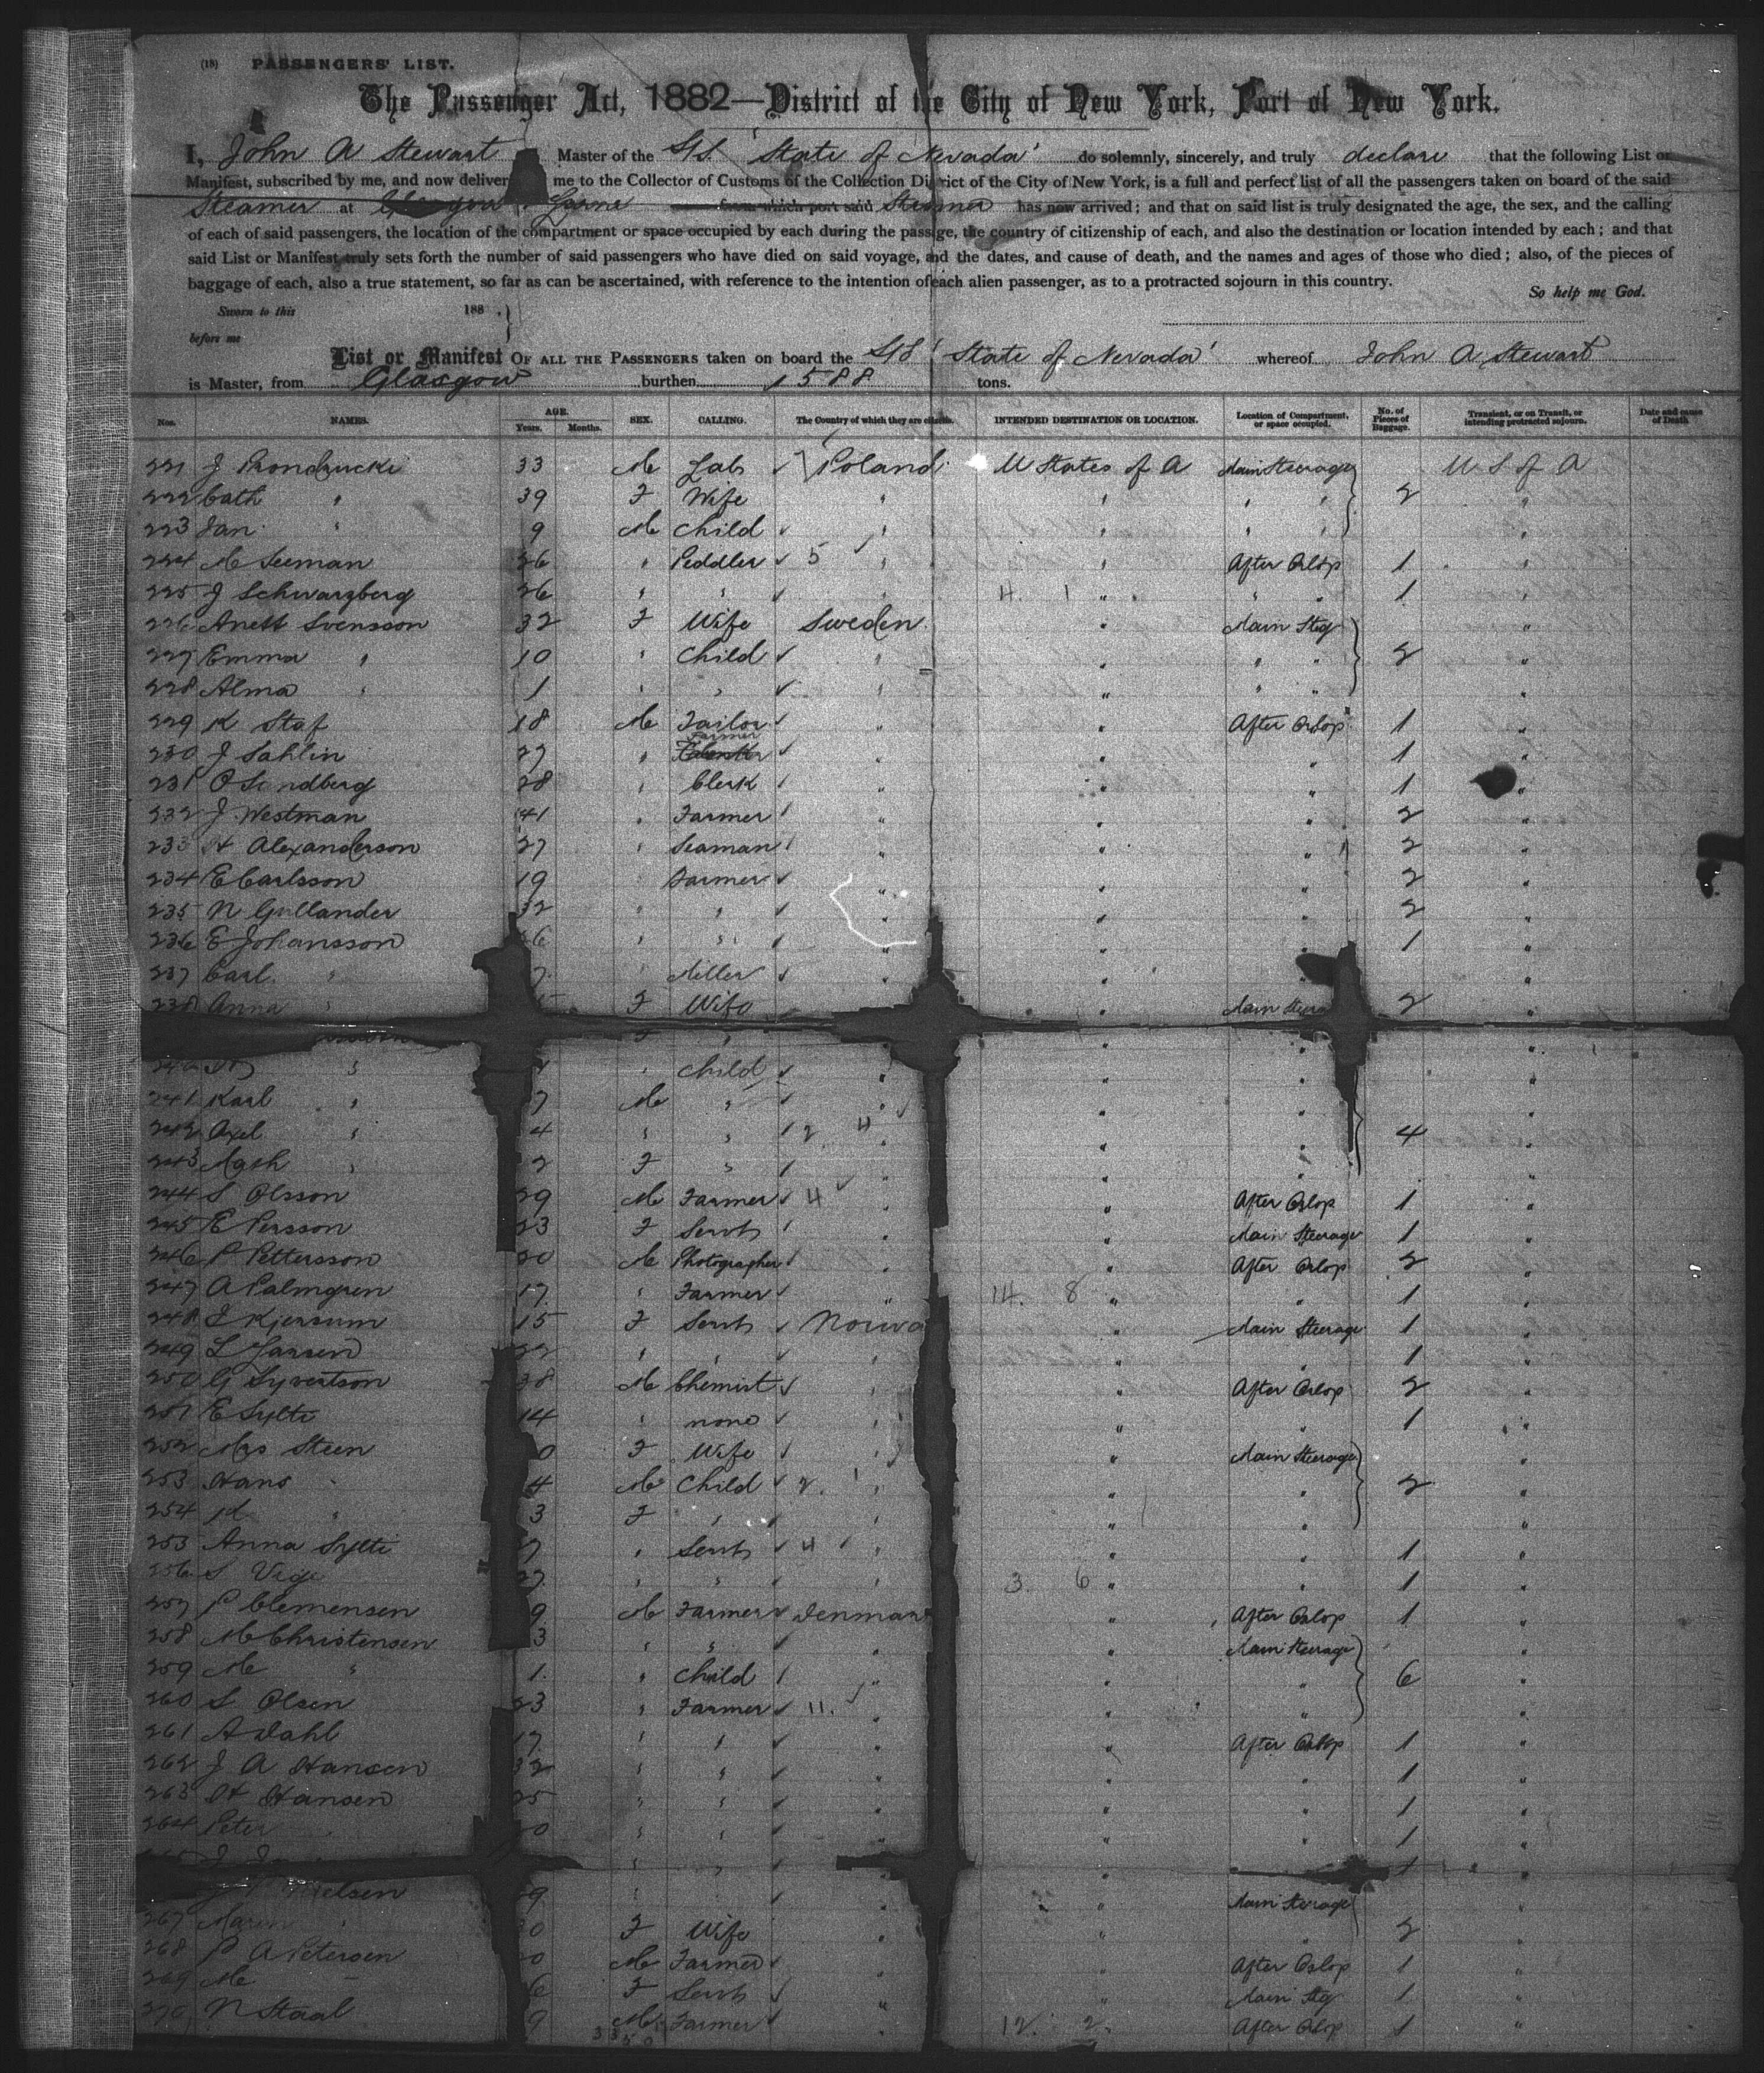 (18) PASSENGERS' LIST.
The Passenger Act, 1882—District of the City of New York, Port of New York.
I, John A Stewart Master of the S/S. 'State of Nevada' do solemnly, sincerely, and truly declare that the following List or
Manifest, subscribed by me, and now deliver me to the Collector of Customs of the Collection District of the City of New York, is a full and perfect list of all the passengers taken on board of the said
Steamer at Glasgow Larne from which port said Steamer has now arrived; and that on said list is truly designated the age, the sex, and the calling
of each of said passengers, the location of the compartment or space occupied by each during the passage, the country of citizenship of each, and also the destination or location intended by each; and that
said List or Manifest truly sets forth the number of said passengers who have died on said voyage, and the dates, and cause of death, and the names and ages of those who died; also, of the pieces of
baggage of each, also a true statement, so far as can be ascertained, with reference to the intention of each alien passenger, as to a protracted sojourn in this country.
So help me God.
Sworn to this 188 .
before me
List or Manifest OF ALL THE PASSENGERS taken on board the S/S 'State of Nevada' whereof John A Stewart
is Master, from Glasgow burthen 1588 tons.
Nos. NAMES. AGE. Years. Months. SEX. CALLING. The Country of which they are citizens. INTENDED DESTINATION OR LOCATION. Location of Compartment, or space occupied. No. of Pieces of Baggage. Transient, or on Transit, or intending protracted sojourn. Date and cause of Death
221 J 33 M Lab Poland U States of A Main Steerage U S of A
222 Cath " 39 F Wife " " " " 2 "
223 Jan " 9 M Child " " " " "
224 M Seeman 26 " Peddler 5 " " After Orlop 1 "
225 J Schwarzberg 26 " " " 4. 1 " " " 1 "
226 Anett Svensson 32 F Wife Sweden " Main Stg "
227 Emma " 10 " Child " " " " 2 "
228 Alma " 1 " " " " " " "
229 K Staf 18 M Tailor " " After Orlop 1 "
230 J Sahlin 27 " Farmer " " " 1 "
231 O Sandberg 28 " Clerk " " " 1 "
232 J. Westman 41 " Farmer " " " 2 "
233 H Alexanderson 27 " Seaman " " " 2 "
234 E Carlsson 19 Farmer " " " 2 "
235 N Gullander 32 " " " " " 2 "
236 E Johansson 6 " " " " " 1 "
237 Carl " 7 " Miller " " " "
238 Anna " F Wife " Main Steerage 2 "
F " " " "
" Child " " " "
241 Karl " 7 M " " " " "
242 Axel " 4 " " 2 4 " " " 4 "
243 " 2 F " " " " "
244 S Olsson 29 M Farmer 4 " " After Orlop 1 "
245 E Persson 23 F Servt " " Main Steerage 1 "
246 P Pettersson 20 M Photographer " " After Orlop 2 "
247 A Palmgren 17 " Farmer " 14. 8 " " 1 "
248 15 F Servt Norwa " Main Steerage 1 "
249 L Jansen 22 " " " " " 1 "
250 G Syvertson 38 M Chemist " " After Orlop 2 "
251 E Sylte 14 " none " " " 1 "
252 Mrs Steen 0 F Wife " " Main Steerage "
253 Hans " 4 M Child 2. " " " 2 "
254 " 3 F " " " " "
253 Anna Sylte 7 " Servt 4 " " " 1 "
256 S 27 " " " 3. 6 " " 1 "
257 P Clemensen 9 M Farmer Denmark " After Orlop 1 "
258 M Christensen 3 " " " " Main Steerage "
259 M " 1 " Child " " " 6 "
260 S Olsen 23 " Farmer 11. " " " "
261 A Dahl 17 " " " " After Orlop 1 "
262 J A Hansen 32 " " " " " 1 "
263 H Hansen 25 " " " " " 1 "
264 Peter 20 " " " " " 1 "
J " " 1 "
Nielsen 9 " " " " Main Steerage "
267 Maren " 30 F Wife " " " 2 "
268 P A Petersen 20 M Farmer " " After Orlop 1 "
269 M — 6 F Servt " " Main Stg 1 "
270 N Staal 9 M Farmer " 12. 2. After Orlop 1 "